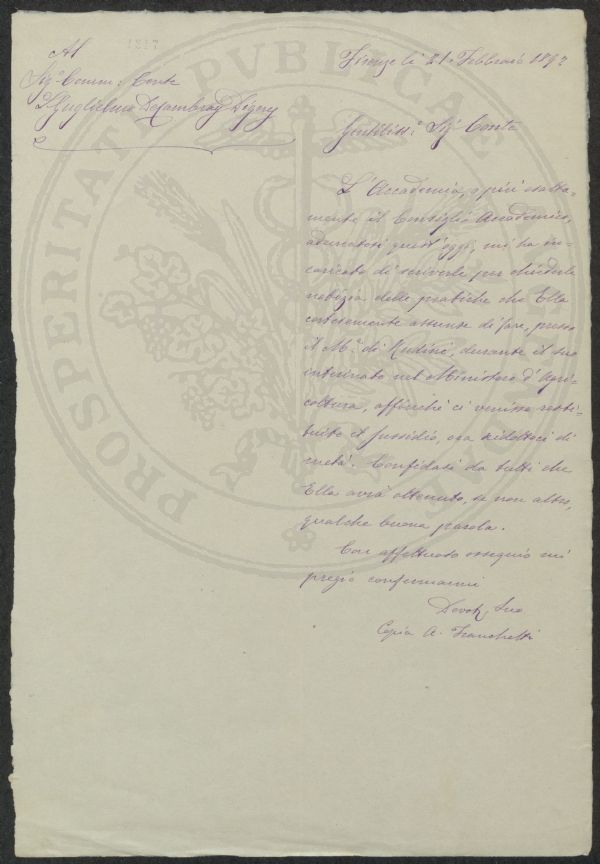 1217
Al
Sigr. Comm. Conte
Guglielmo De Cambray Digny
Firenze li 21. Febbraio 189
Gentiliss. Sigr Conte
L'Accademia, o più esatta-
mente il Consiglio Accademico,
adunatosi quest'oggi, mi ha in-
caricato di scriverle per chiederle
notizia delle pratiche che Ella
cortesemente assunse di fare, presso
il M.se di Rudinì, durante il suo
interinato nel Ministero d'Agri-
coltura, affinché ci venisse resti-
tuito il sussidio, ora ridottoci di
metà. Confidasi da tutti che
Ella avrà ottenuto, se non altro,
qualche buona parola.
Con affettuoso ossequio mi
pregio confermarmi
Devotº Suo
Copia A. Franchetti
PROSPERITATI PVBLICAE AVGENDAE